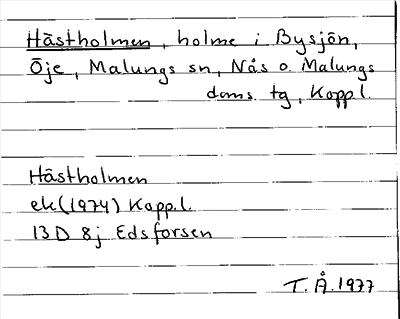 Hästholmen, holme i Bysjön,
Öje, Malungs sn, Nås o. Malungs
doms. tg, Kopp.l.
Hästholmen
ek (1974) Kopp.l.
13 D 8j Edsforsen
T.Å.1977